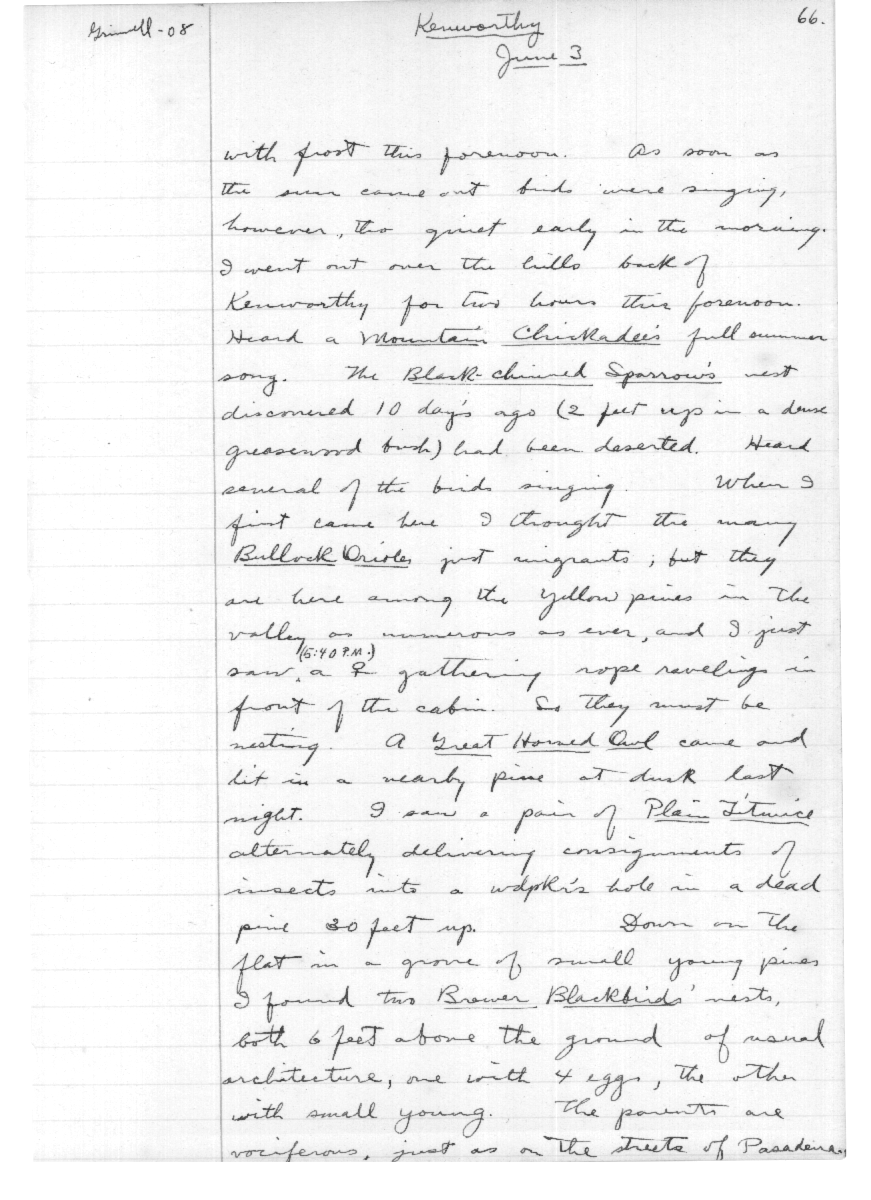 Grinnell-08
Kenworthy
66.
June 3
with frost this forenoon. As soon as
the sun came out birds were singing,
however, tho quiet early in the morning.
I went out over the hills back of
Kenworthy for two hours this forenoon.
Heard a Mountain Chickadee's full summer
song. The Black-chinned Sparrow's nest
discovered 10 day's ago (2 feet up in a dense
greasewood bush) had been deserted. Heard
several of the birds singing. When I
first came here I thought the many
Bullock Orioles just migrants; but they
are here among the yellow pines in the
valley as numerous as ever, and I just
(5:40 P.M.)
saw, a ♀ gathering rope ravelings in
front of the cabin. So they must be
nesting. A Great Horned Owl came and
lit in a nearby pine at dusk last
night. I saw a pair of Plain Titmice
alternately delivering consignments of
insects into a wdpkr's hole in a dead
pine 30 feet up. Down on the
flat in a grove of small young pines
I found two Brewer Blackbirds' nests,
both 6 feet above the ground of usual
architecture, one with 4 eggs, the other
with small young. The parents are
vociferous, just as on the streets of Pasadena.